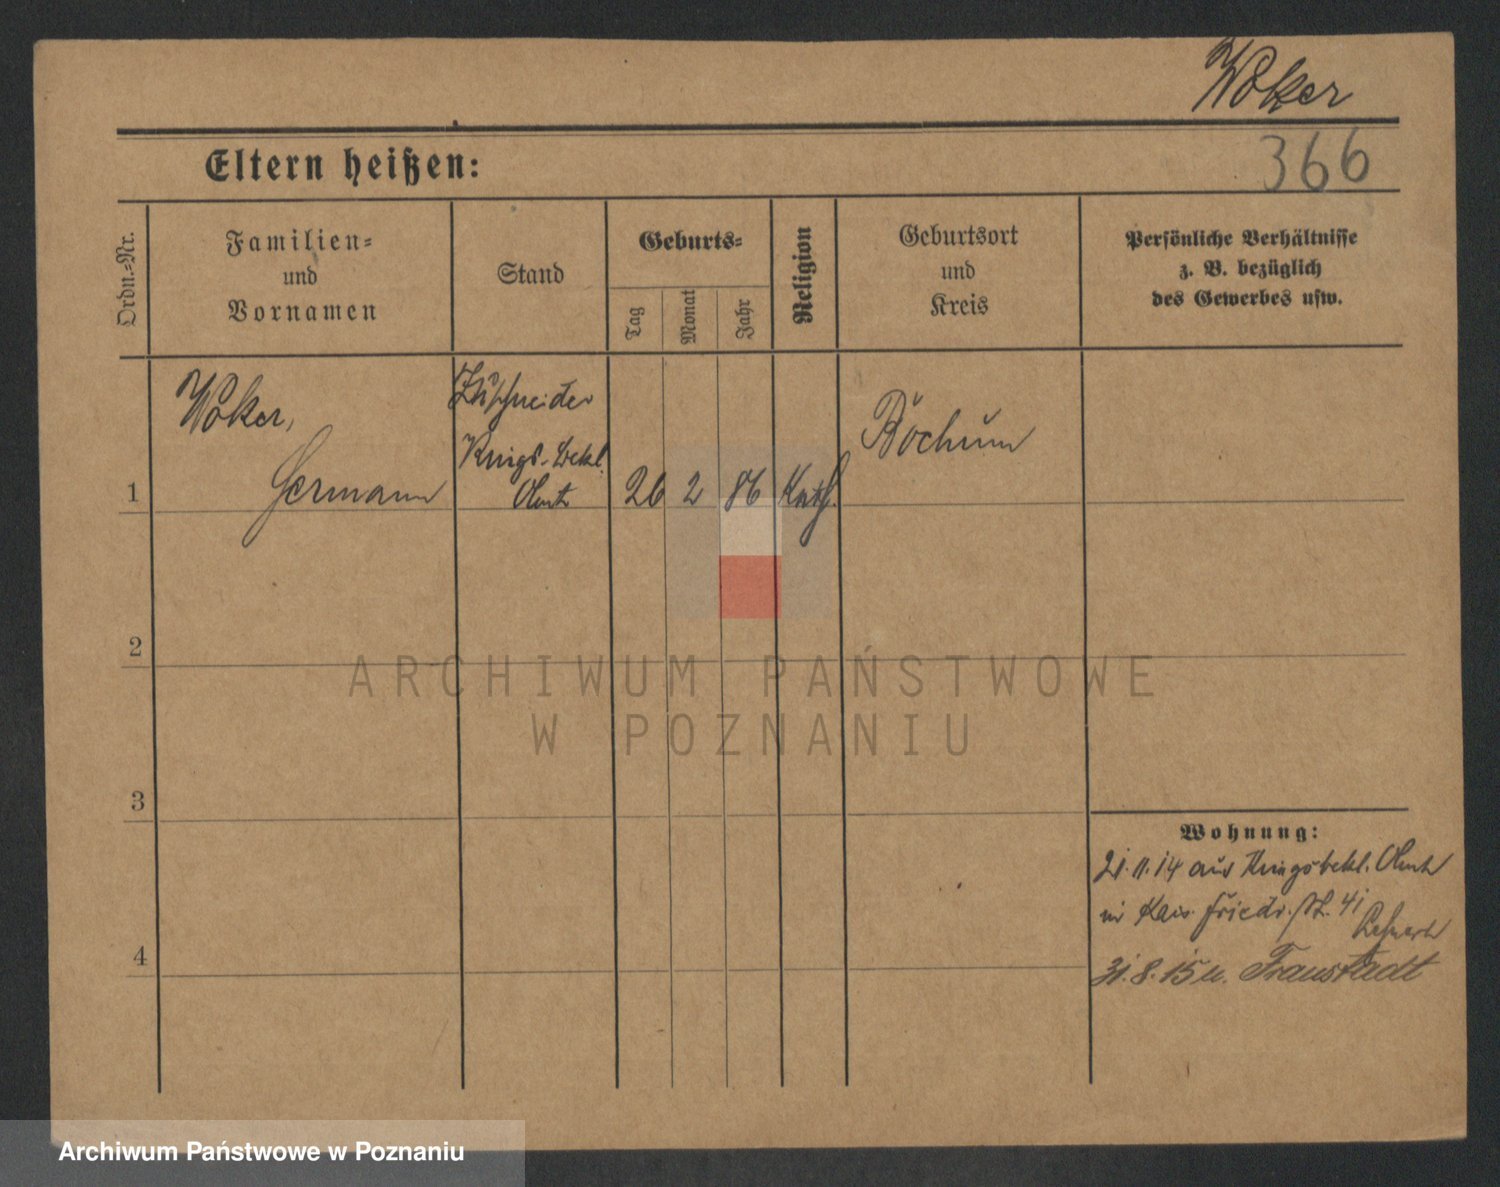 Woker
366
Eltern heißen:
Ordn.=Nr.
Familien=
und
Vornamen
Stand
Geburts=
Tag
Monat
Jahr
Religion
Geburtsort
und
Kreis
Persönliche Verhältnisse
z. B. bezüglich
des Gewerbes usw.
1
Woker,
Hermann
Zuschneider
Kriegs-Bekl.
Amt
26 2 86 Kath.
Bochum
2
3
4
Wohnung:
21.11.14 aus Kriegsbekl. Amt
in Kais. Friedr. str. 41
31.8.15 n. Fraustadt
ARCHIWUM PAŃSTWOWE
W POZNANIU
Archiwum Państwowe w Poznaniu